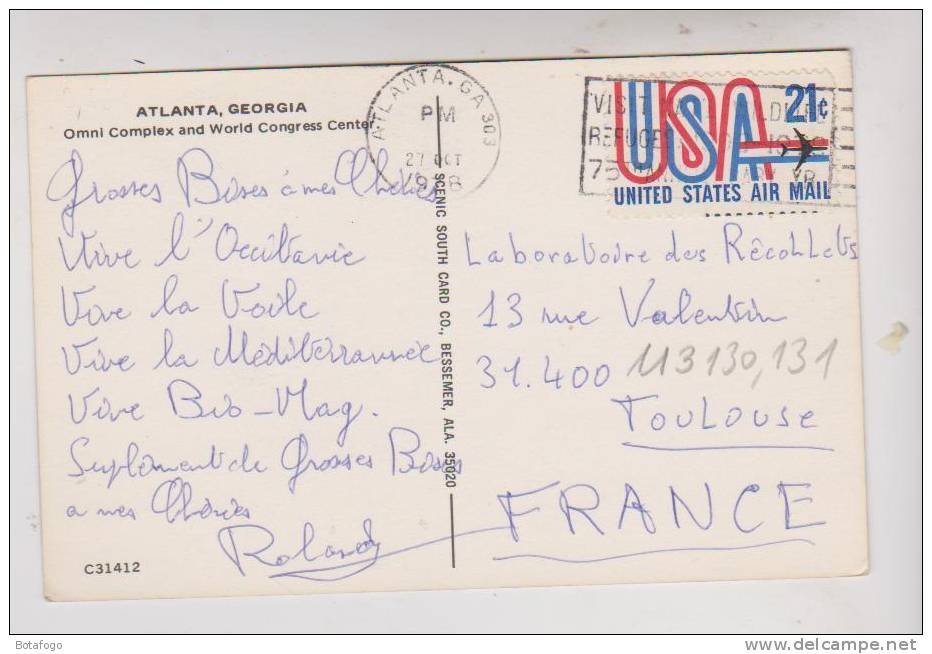 ATLANTA, GEORGIA
Omni Complex and World Congress Center
Grosses Bises à mes Chéries
Vive l'Occitanie
Vive la Voile
Vive la Méditerrannée
Vive Bio-Mag.
Suplément de Grosses Bises
a mes Chéries
Roland
C31412
SCENIC SOUTH CARD CO., BESSEMER, ALA. 35020
ATLANTA. GA 303
PM
27 OCT
VISIT
REFUGES
75
USA 21¢
UNITED STATES AIR MAIL
Laboratoire des Récollets
13 rue Valentin
31.400 113130,131
TOULOUSE
FRANCE
Botafogo
www.delcampe.net